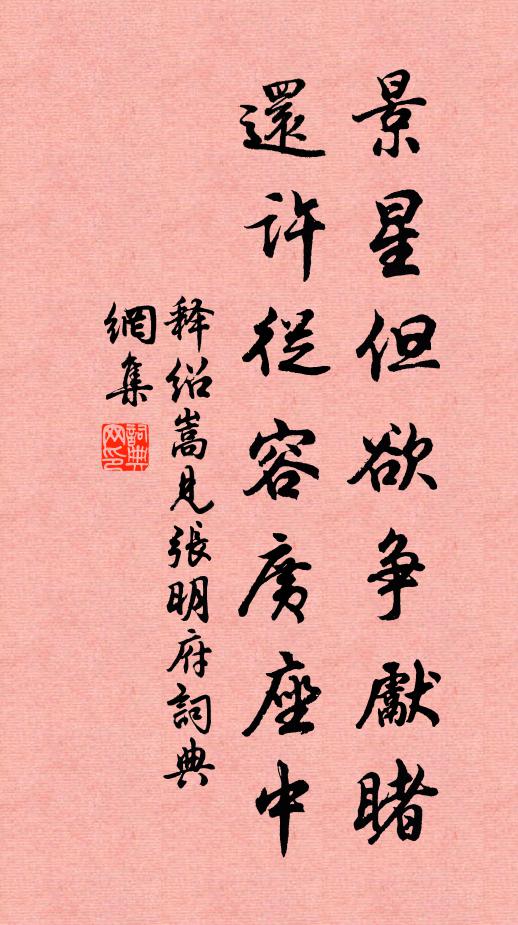 景星但欲争獻睹
還許從容廣座中
释绍嵩見張明府詞典
網集
詞典
网印